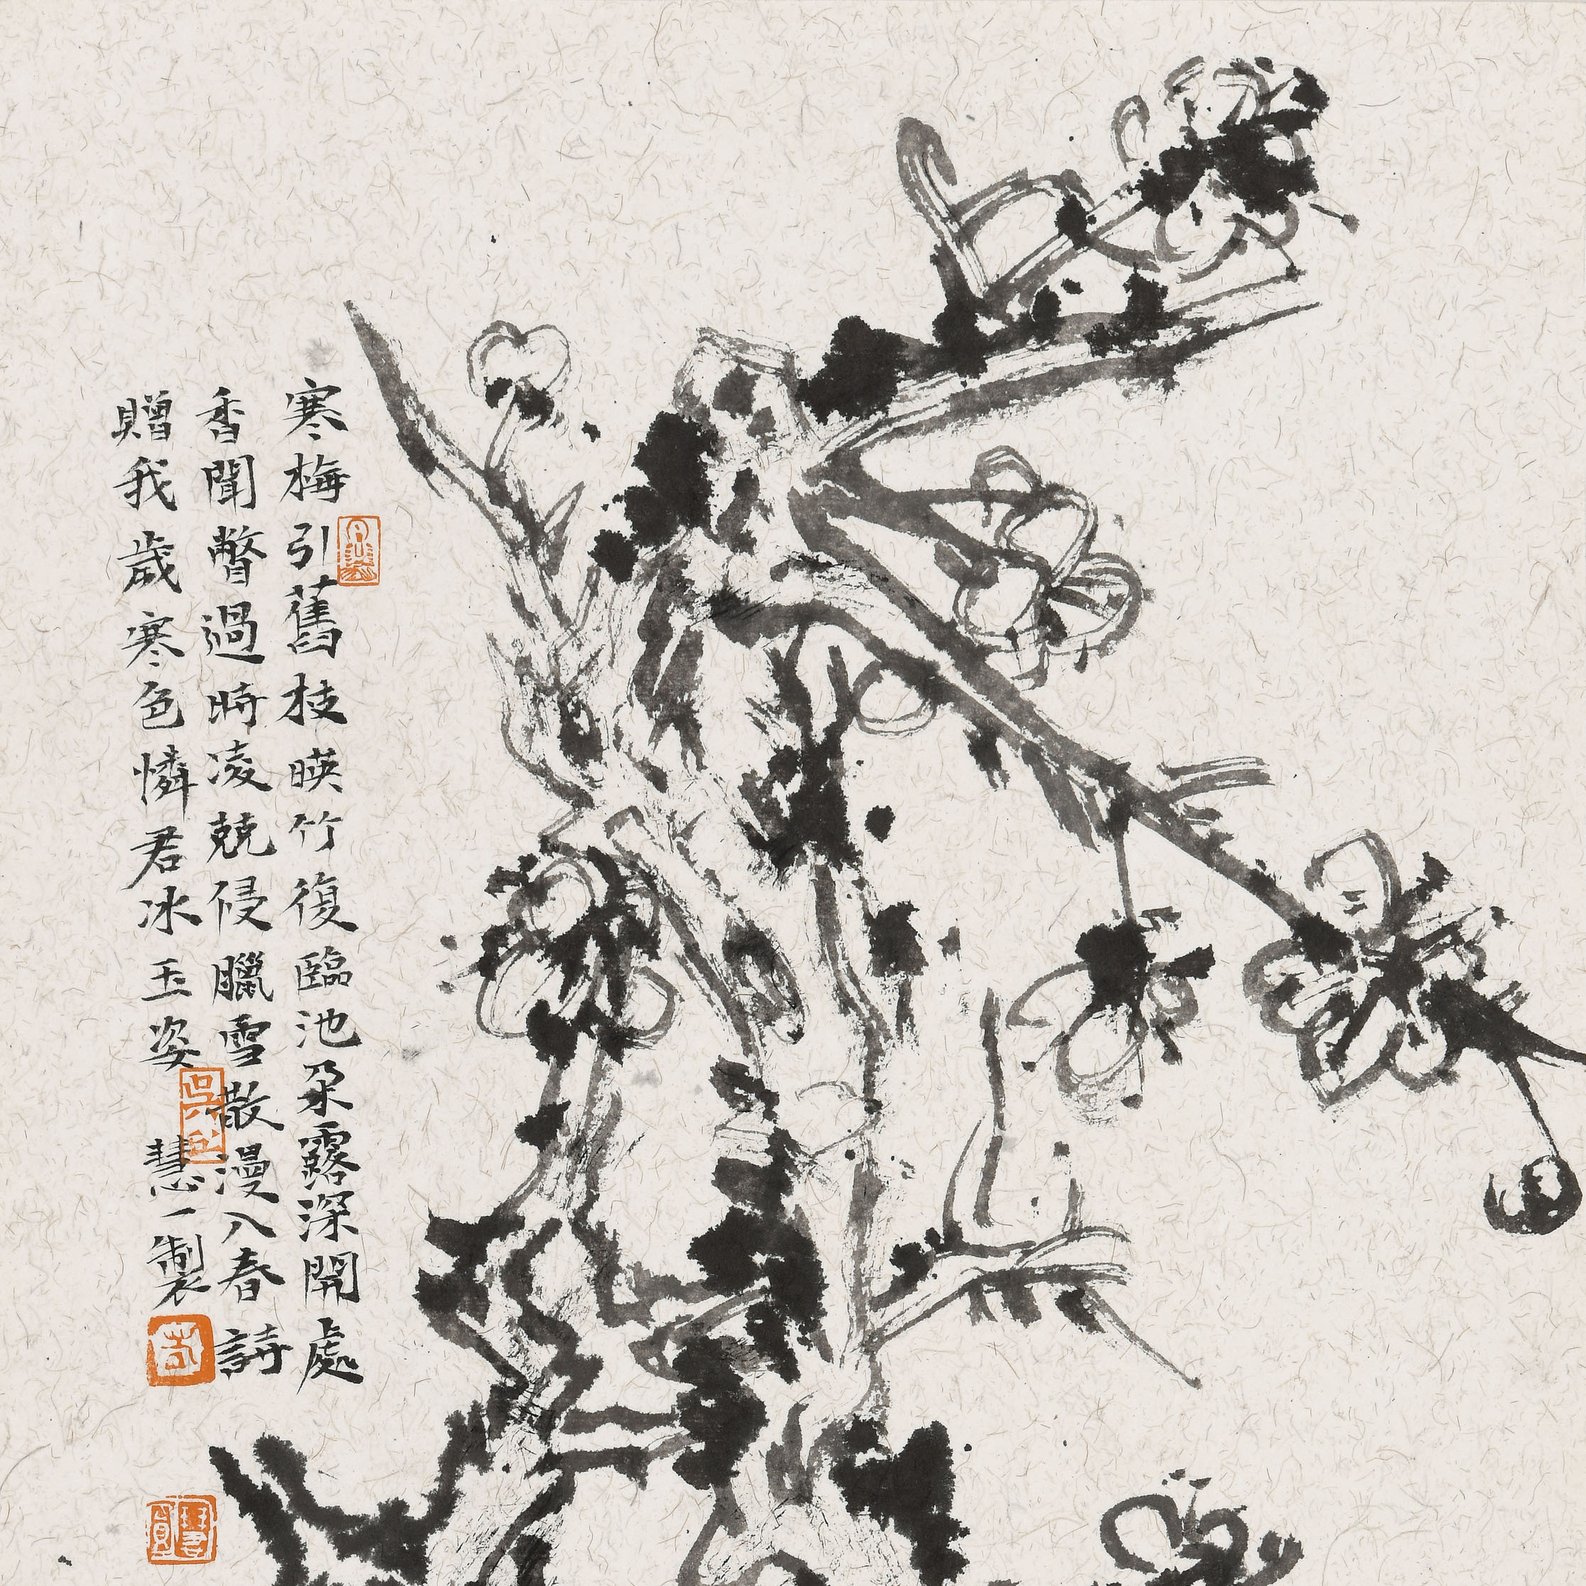 寒梅引舊枝暎竹復臨池朶露深開處
香聞瞥過時凌兢侵臘雪散漫入春詩
贈我歲寒色憐君冰玉姿 慧一製